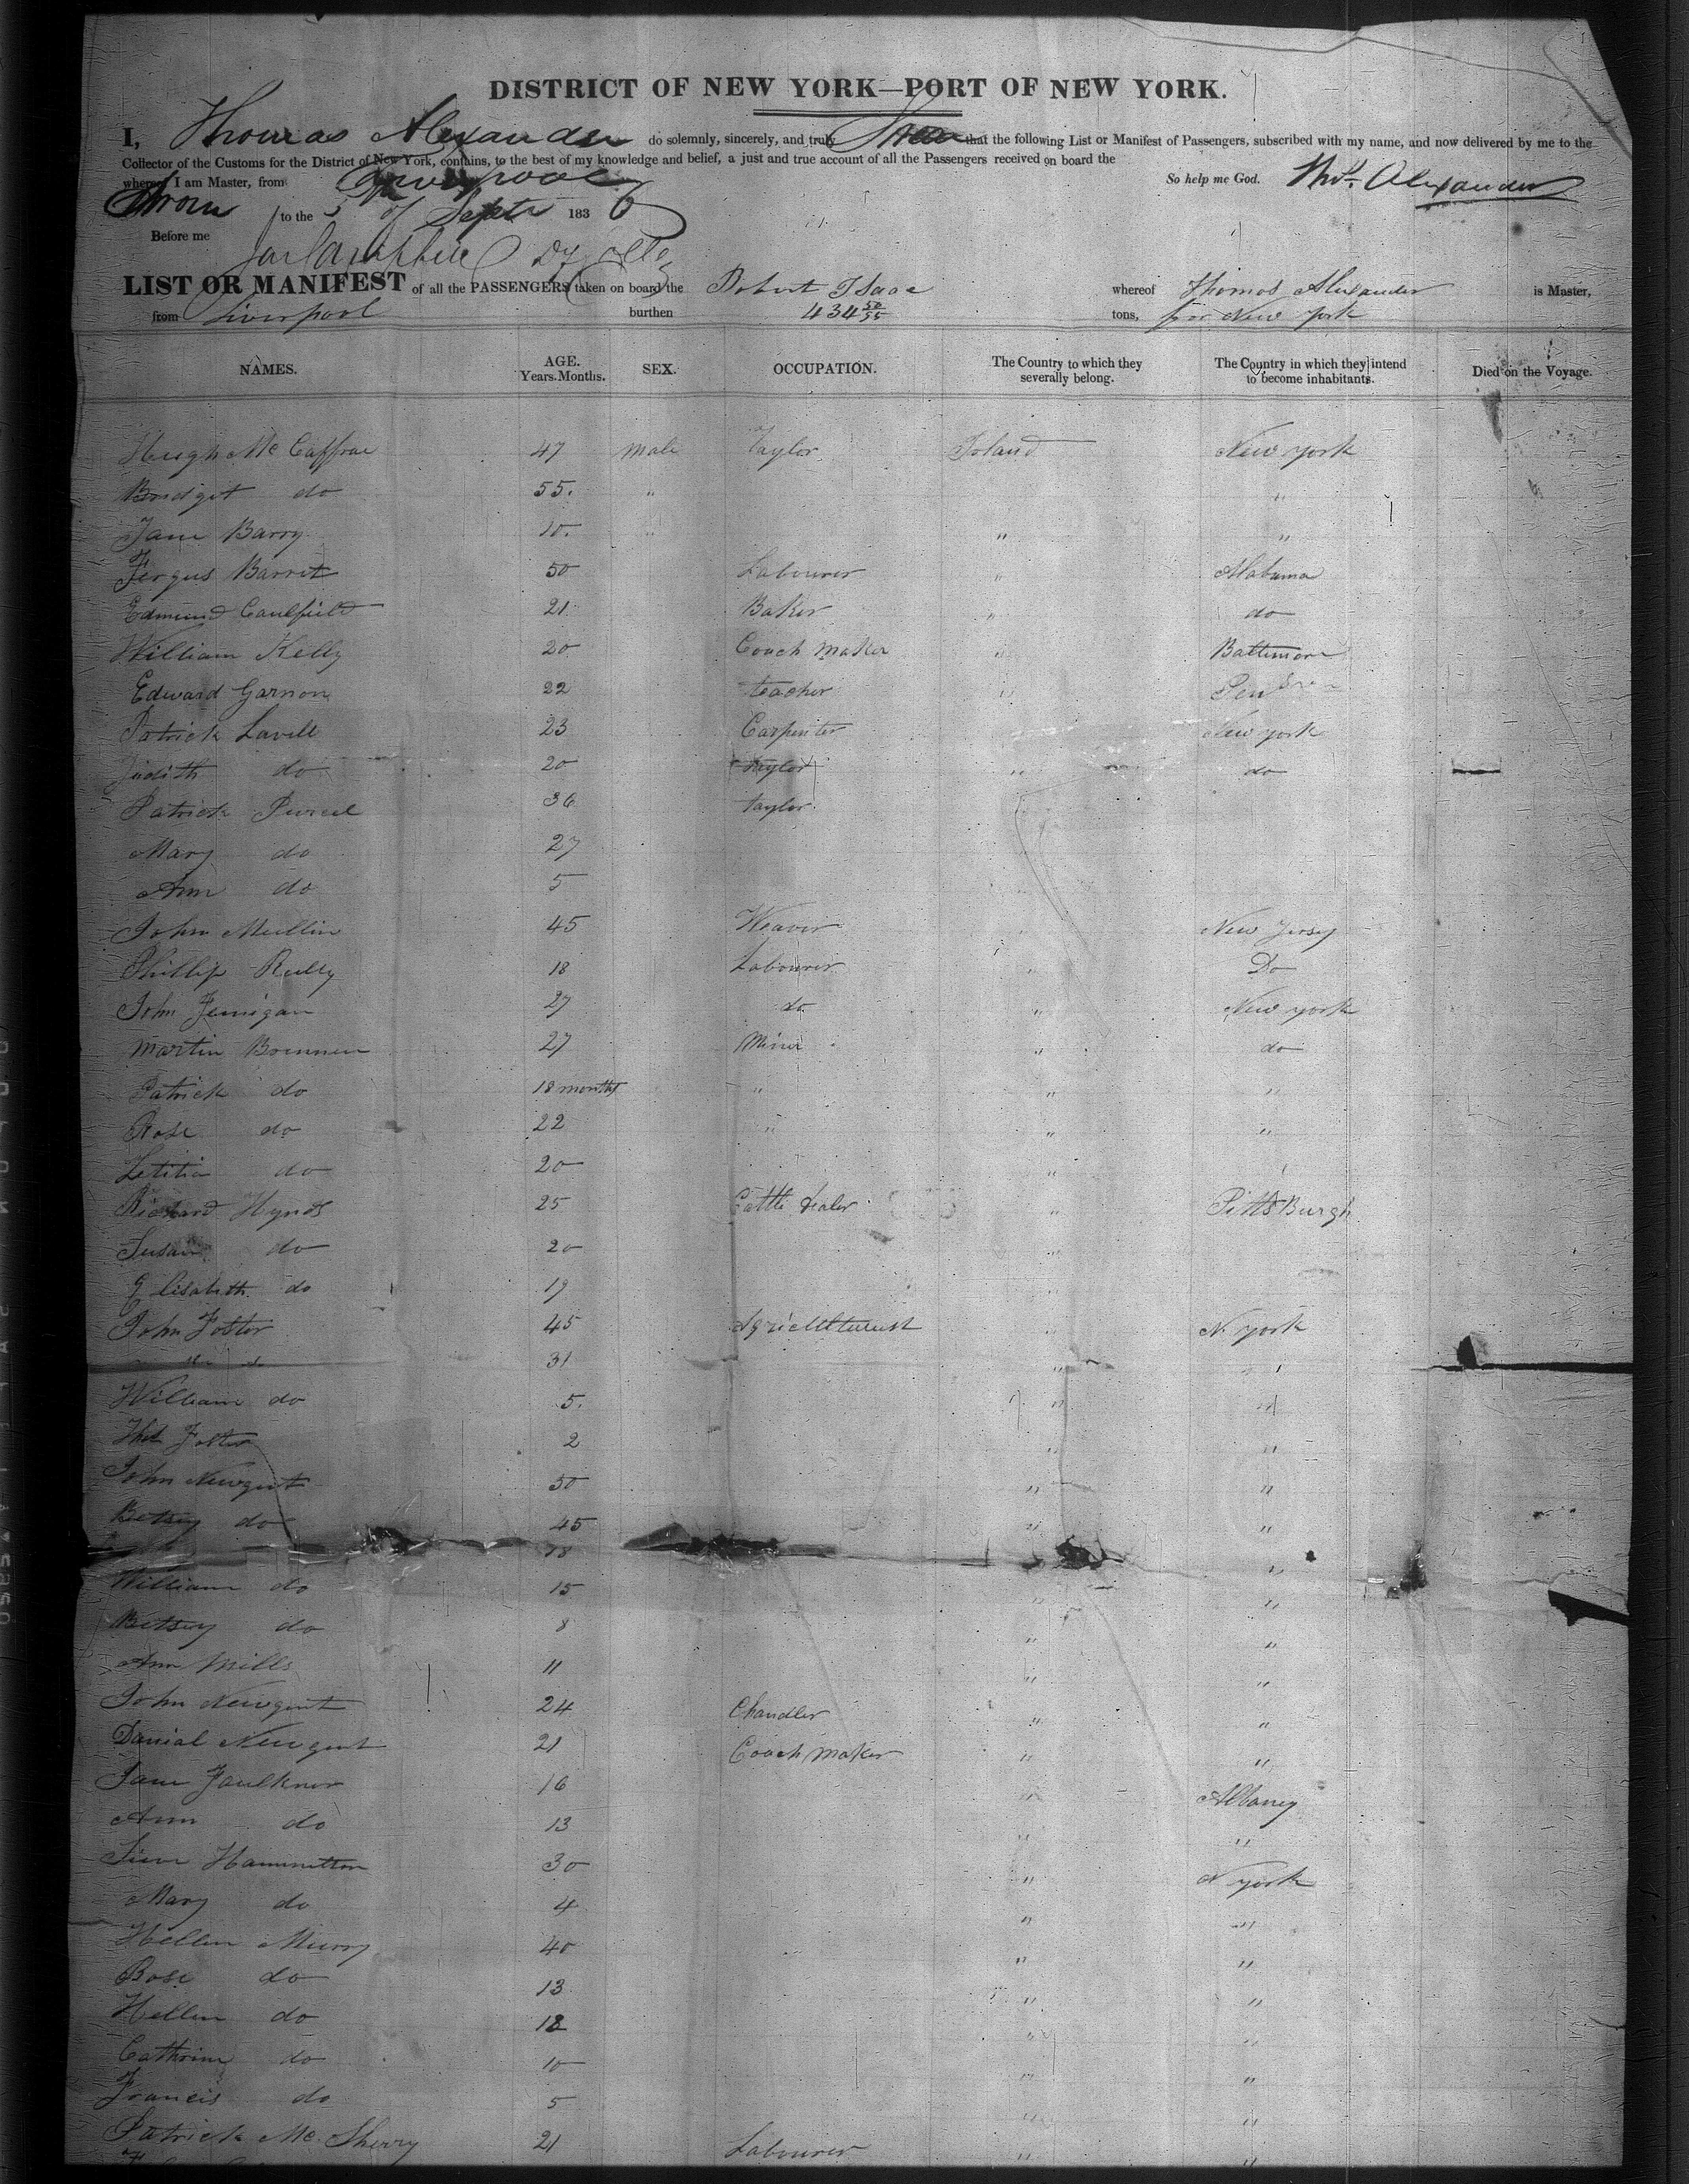 DISTRICT OF NEW YORK—PORT OF NEW YORK.
I, Thomas Alexander do solemnly, sincerely, and truly Swear that the following List or Manifest of Passengers, subscribed with my name, and now delivered by me to the
Collector of the Customs for the District of New York, contains, to the best of my knowledge and belief, a just and true account of all the Passengers received on board the
whereof I am Master, from Liverpool So help me God. Thos. Alexander
Sworn to the 5 of Septr 1836
Before me
LIST OR MANIFEST of all the PASSENGERS taken on board the Robert Isaac whereof Thomas Alexander is Master,
from Liverpool burthen 434 50/95 tons, for New York
NAMES. AGE. Years. Months. SEX. OCCUPATION. The Country to which they severally belong. The Country in which they intend to become inhabitants. Died on the Voyage.
Hugh Mc Caffrae 47 Male Taylor Irland New York
Bridget do 55. " "
Jane Barry 10. " " "
Fergus Barret 50 Labourer " Alabama
Edmund Caulfield 21 Baker " do
William Kelly 20 Coach Maker " Baltimore
Edward Garnon 22 teacher "
Patrick Lavell 23 Carpenter New York
Judith do 20 taylor " do
Patrick Purcel 36 taylor
Mary do 27
Ann do 5
John Mullin 45 Weaver New Jersey
Phillip Reilly 18 Labourer " Do
John Fennigan 27 do " New York
Martin Brennen 27 Miner " do
Patrick do 18 months " " "
Rose do 22 " " "
Letitia do 20 "
Richard Hynds 25 Cattle dealer " PittsBurgh
Susan do 20 "
Elisabeth do 19
John Foster 45 Agricultturist " N York
31 "
William do 5. " "
Thos Foster 2 " "
John Newgent 50 " "
Betsey do 45 " "
18 "
William do 15 " "
Betsey do 8 " "
Ann Mills 11 " "
John Newgent 24 Chandler " "
Danial Newgent 21 Coach Maker " "
Jane Faulkner 16 " Albaney
Ann do 13 " "
Hammitton 30 " N York
Mary do 4 " "
Hellen Murry 40 " "
Rose do 13 " "
Hellen do 12 " "
Cathrine do 10 " "
Francis do 5 " "
Patrick Mc. Sherry 21 Labourer " "